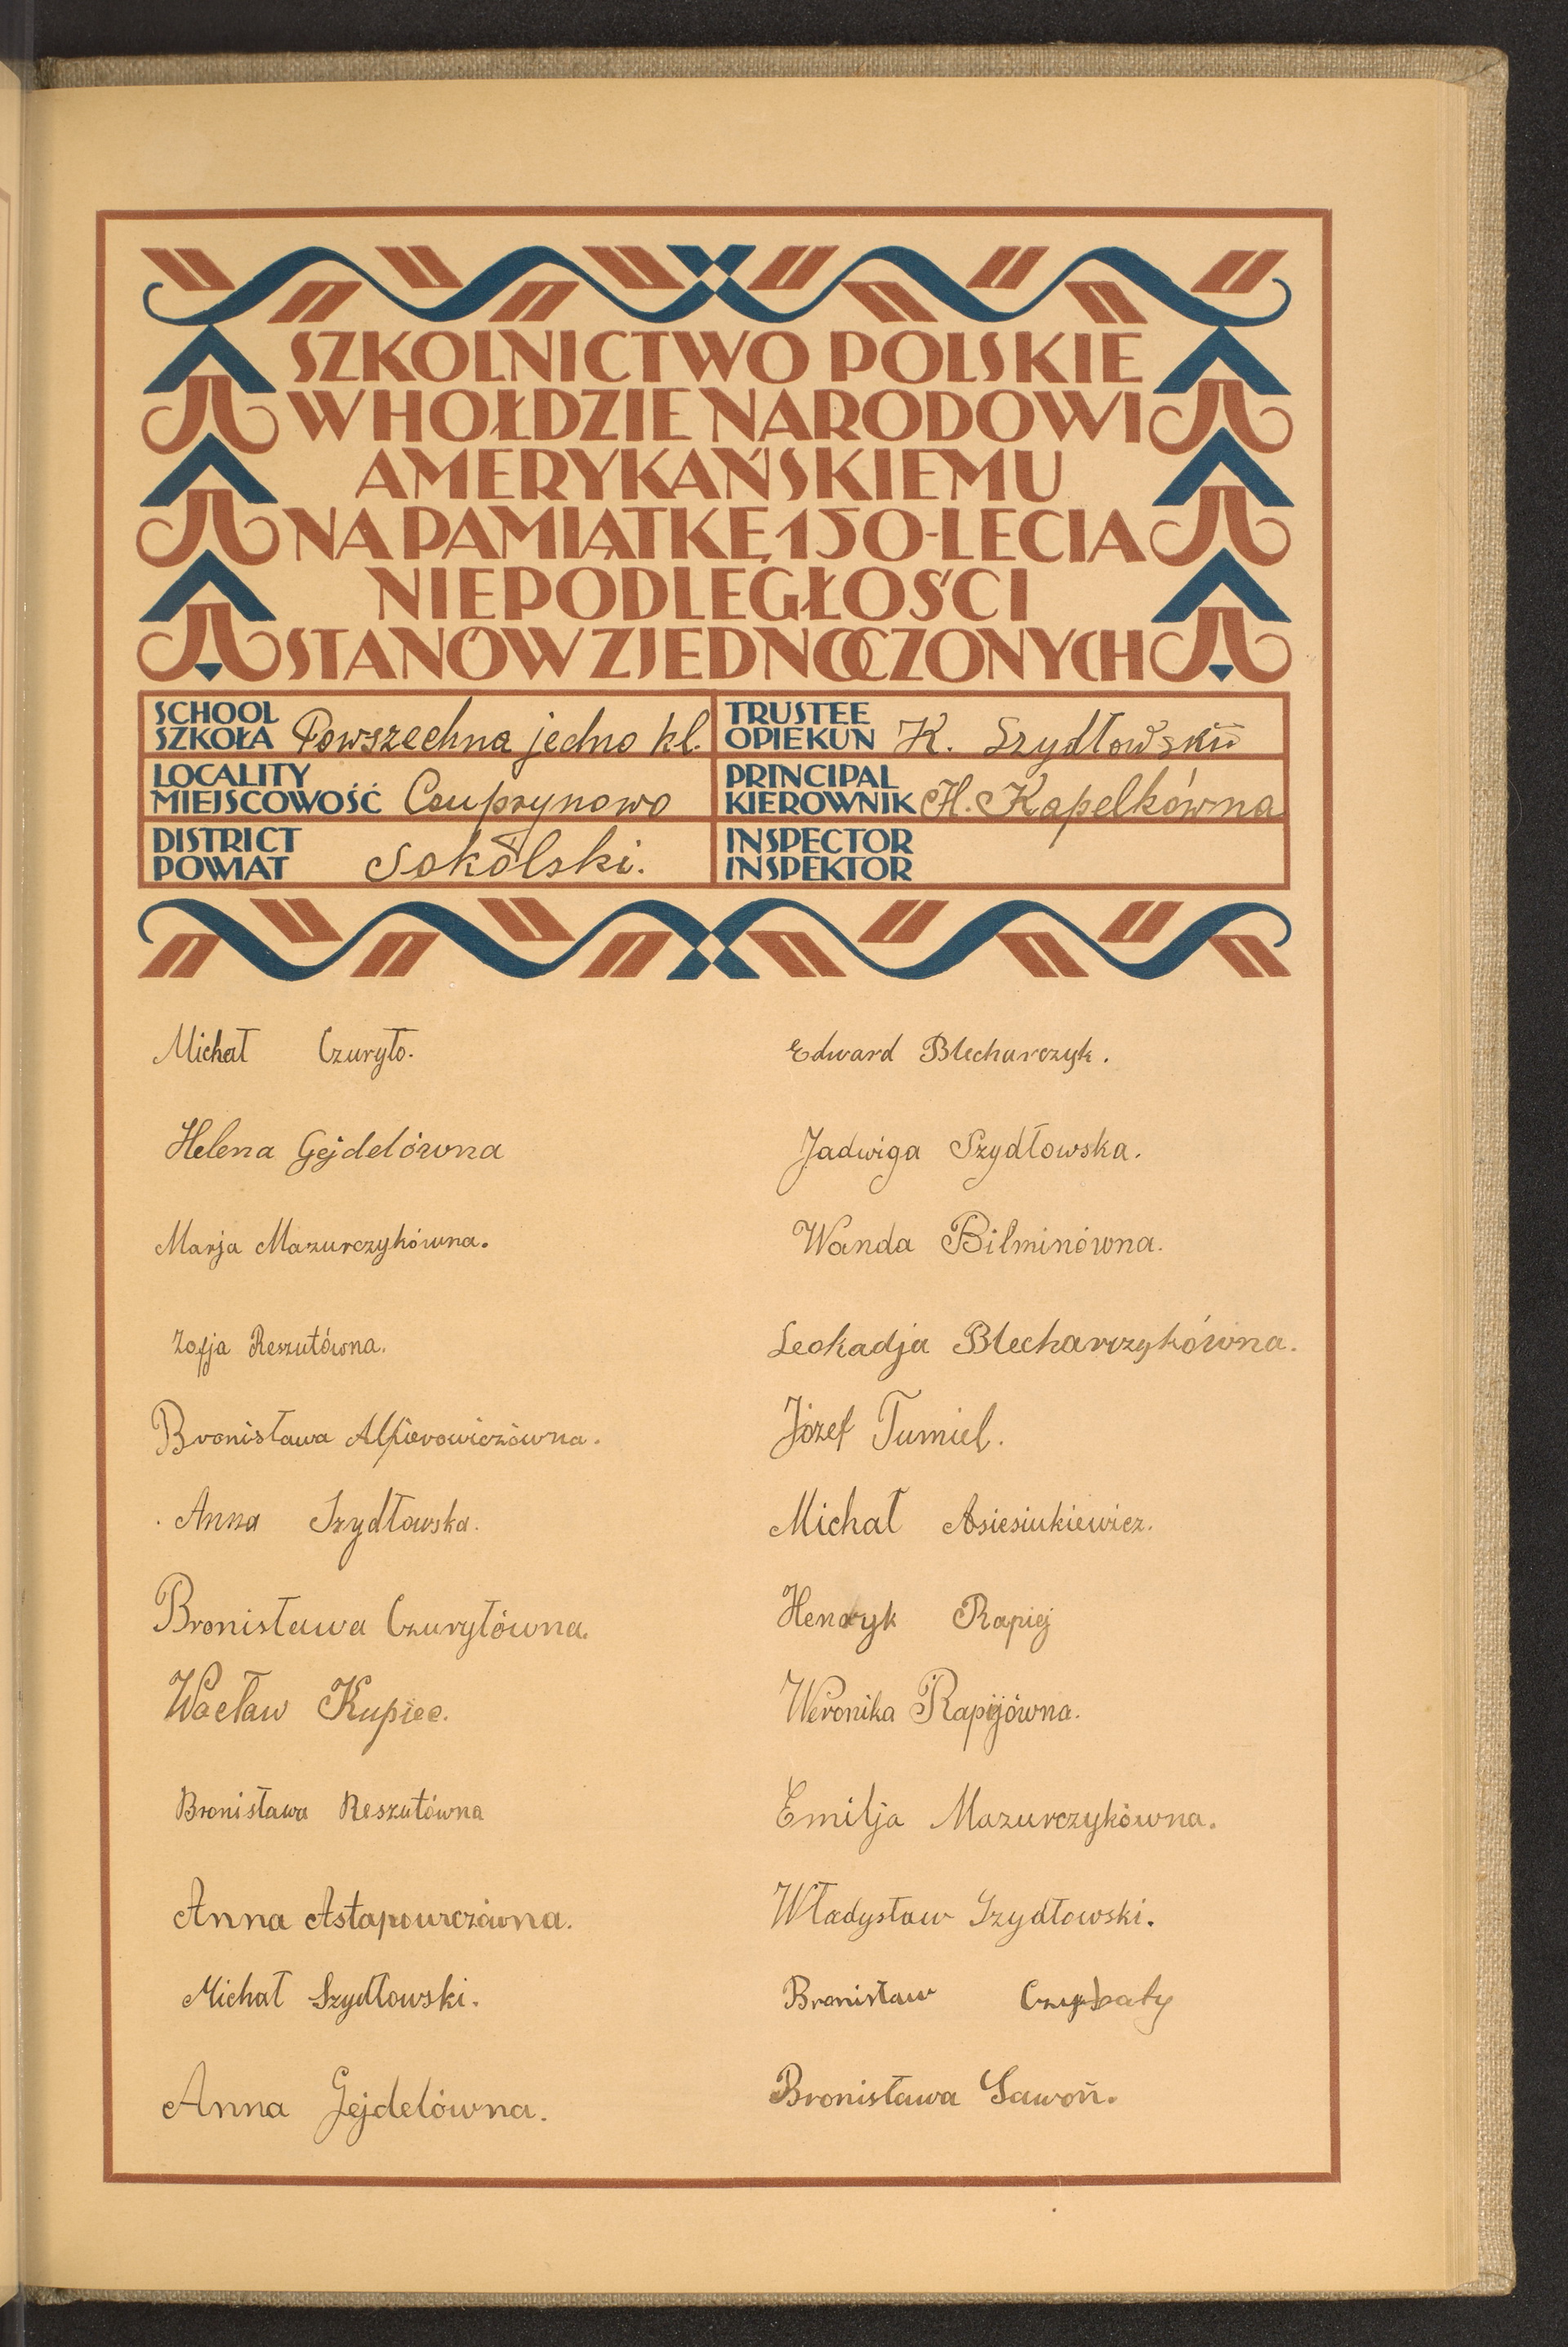 SZKOLNICTWO POLSKIE
W HOŁDZIE NARODOWI
AMERYKAŃSKIEMU
NA PAMIĄTKĘ 150-LECIA
NIEPODLEGŁOŚCI
STANÓW ZJEDNOCZONYCH
SCHOOL
SZKOŁA Powszechna jedno kl.
LOCALITY
MIEJSCOWOŚĆ Czuprynowo
DISTRICT
POWIAT Sokólski.
TRUSTEE
OPIEKUN K. Szydłowski
PRINCIPAL
KIEROWNIK H. Kapelkówna
INSPECTOR
INSPEKTOR
Michał Czuryło.
Helena Gejdelówna
Marja Mazurczykówna.
Zofja Reszutówna.
Bronisława Alfierowiczówna.
Anna Szydłowska.
Bronisława Czuryłówna.
Wacław Kupiec.
Bronisława Reszutówna
Anna Astapowiczówna.
Michał Szydłowski.
Anna Gejdelówna.
Edward Blecharczyk.
Jadwiga Szydłowska.
Wanda Bilminówna.
Leokadja Blecharczykówna.
Józef Tumiel.
Michał Asiesiukiewicz.
Henryk Rapiej
Weronika Rapijówna.
Emilja Mazurczykówna.
Władysław Szydłowski.
Bronisław
Bronisława Sawoń.